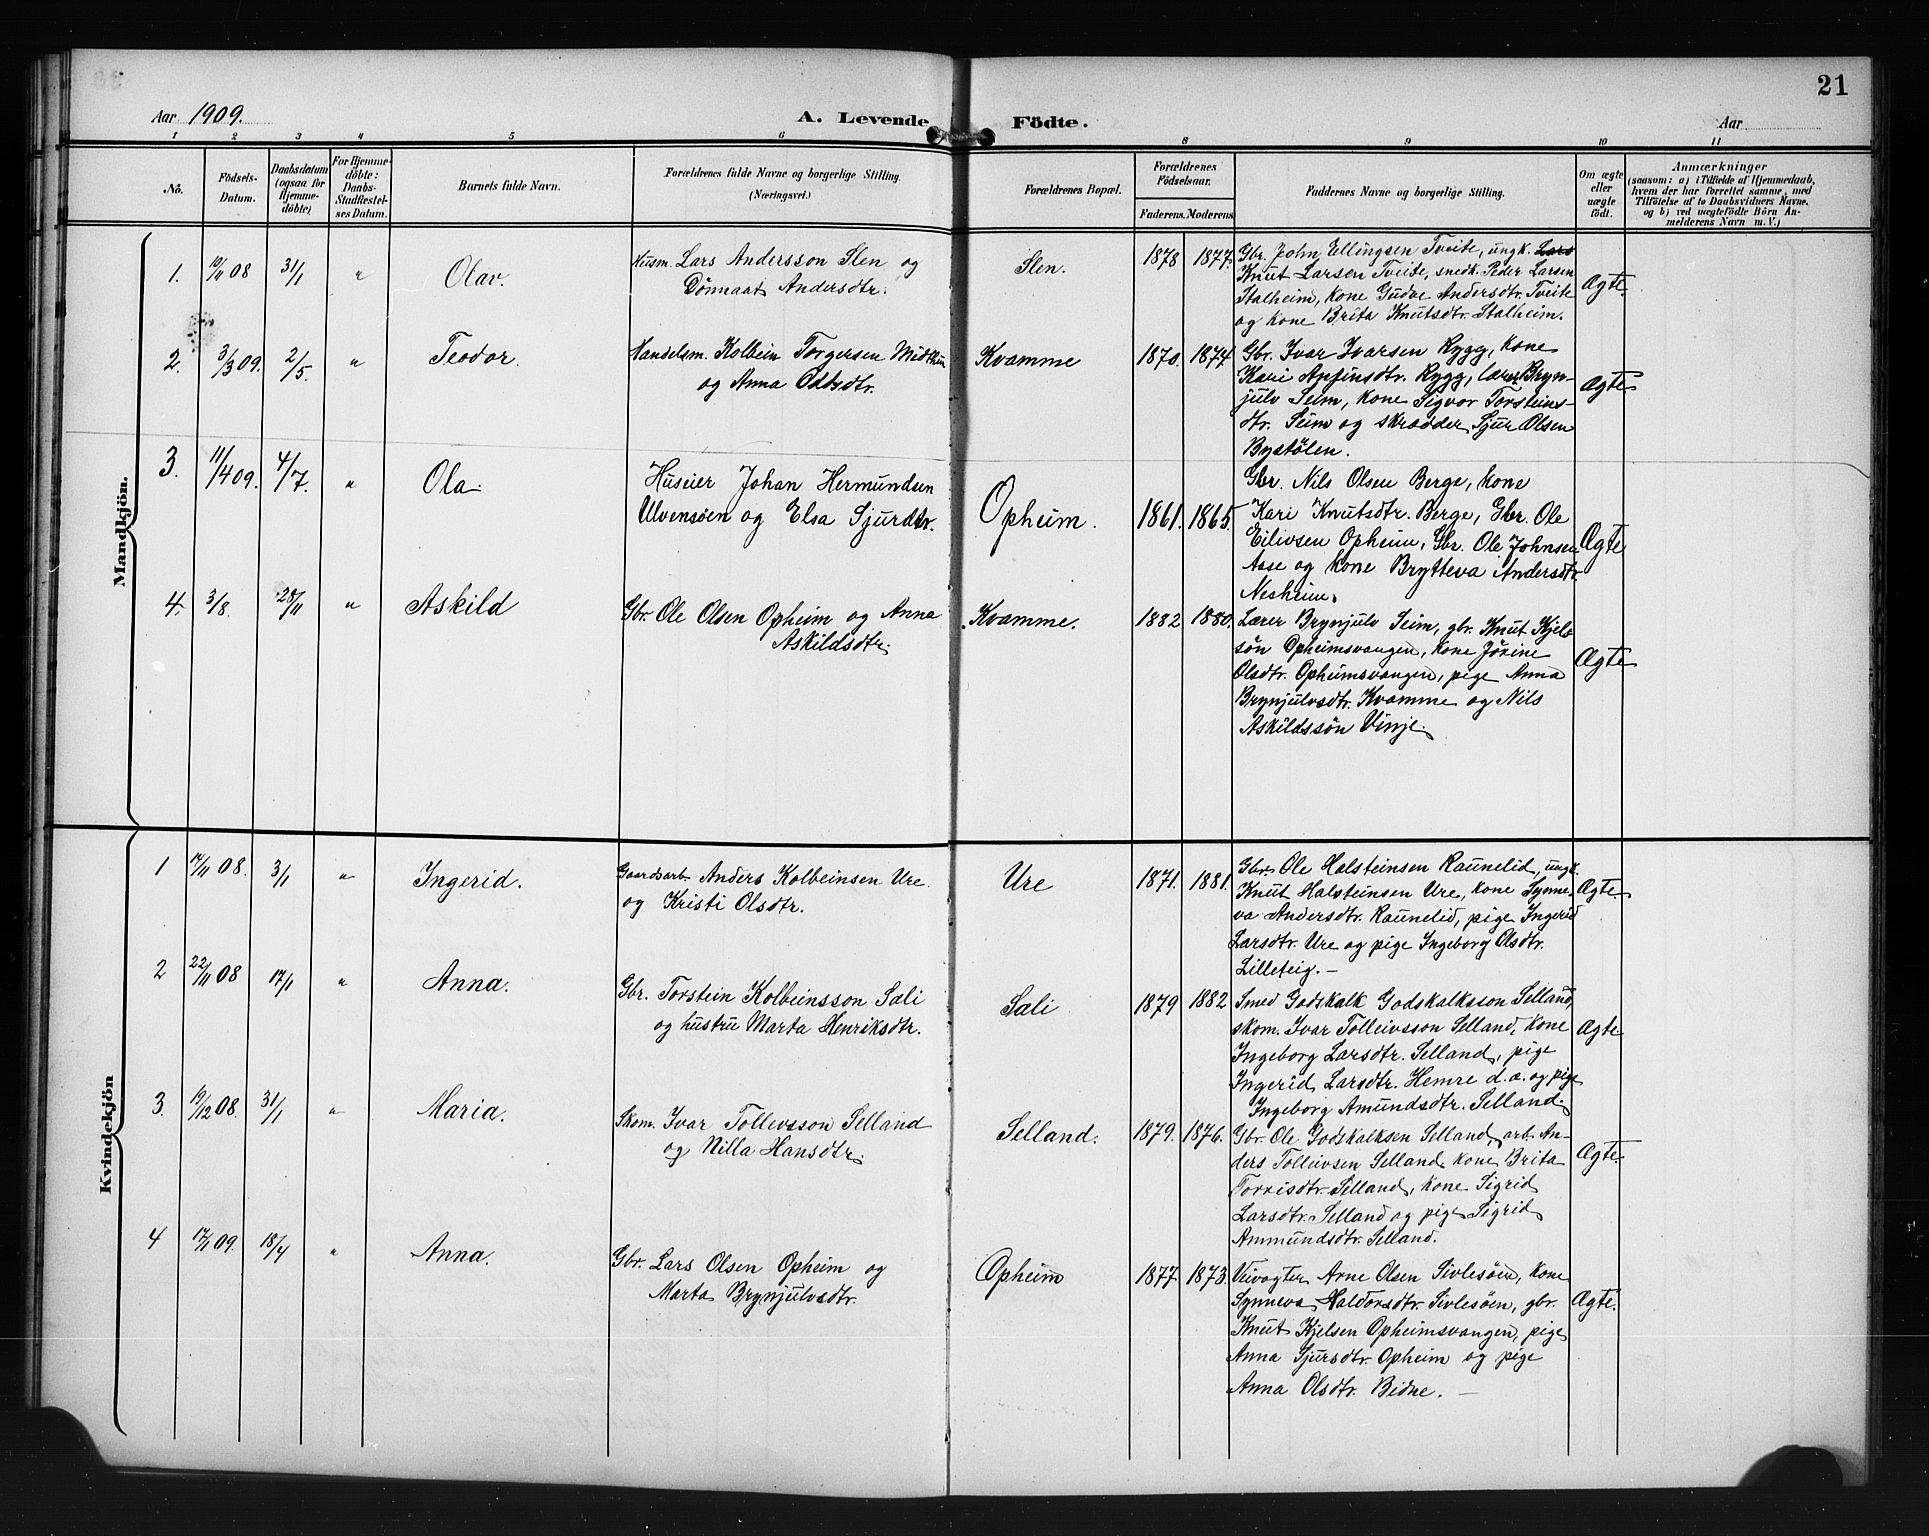 21
Aar 1909.
A. Levende Födte.
Aar
1 2 3 4 5 6 8 9 10 11
No.
Födsels-
Datum.
Daabsdatum
(ogsaa for
Hjemme-
döbte)
For Hjemme-
döbte:
Daabs-
Stadfæstel-
ses Datum.
Barnets fulde Navn.
Forældrenes fulde Navne og borgerlige Stilling.
(Næringsvei.)
Forældrenes Bopæl.
Forældrenes
Födselsaar.
Faderens. Moderens
Faddernes Navne og borgerlige Stilling.
Om ægte
eller
uægte
födt.
Anmærkninger
(saasom: a) i Tilfælde af Hjemmedaab,
hvem der har forrettet samme, med
Tilföielse af to Daabsvidners Navne,
og b) ved uægtefödte Börn An-
melderens Navn m. V.)
Mandkjön.
1. 10/11 08 31/1 " Olav.
Husm. Lars Andersson Slen og
Dönnaat Andersdtr.
Slen. 1878 1877.
Gbr. John Ellingsen Tveite, ungk. Lars
Knut Larsen Tveite, snedk. Peder Larsen
Stalheim, kone Gudve Andersdtr. Tveite
og kone Brita Knutsdtr. Stalheim.
Ægte.
2. 3/3 09. 2/5. " Teodor.
Handelsm. Kolbein Torgersen Midthun
og Anna Oddsdtr.
Kvamme 1870. 1874.
Gbr. Ivar Ivarsen Rygg, kone
Kari Anfinsdtr. Rygg, lærer Bryn-
julv Seim, kone Sigvor Torsteins-
dtr. Seim og skrædder Sjur Olsen
Bystölen.
Ægte
3. 11/4 09. 4/7. " Ola.
Huseier Johan Hermundsen
Ulvensöen og Elsa Sjurdtr.
Opheim. 1861. 1865.
Gbr. Nils Olsen Berge, kone
Kari Knutsdtr. Berge, Gbr. Ole
Eilivsen Opheim, Gbr. Ole Johnsen
Aase og kone Brytteva Andersdtr.
Nesheim.
Ægte
4. 3/8. 28/11 " Askild
Gbr. Ole Olsen Opheim og Anna
Askildsdtr.
Kvamme. 1882 1880.
Lærer Brynjulv Seim, gbr. Knut Kjels-
sön Opheimsvangen, kone Jörine
Olsdtr. Opheimsvangen, pige Anna
Brynjulvsdtr. Kvamme og Nils
Askildssön Vinje.
Ægte
Kvindekjön
1 17/11 08. 3/1 " Ingerid.
Gaardsarb. Anders Kolbeinsen Ure
og Kristi Olsdtr.
Ure 1871. 1881.
Gbr. Ole Halsteinsen Raunelid, ungk.
Knut Halsteinsen Ure, kone Synne-
va Andersdtr. Raunelid, pige Ingerid
Larsdtr. Ure og pige Ingeborg Olsdtr.
Lilleteig. —
Ægte.
2 22/11 08 17/1 " Anna.
Gbr. Torstein Kolbeinsson Sæli
og hustru Marta Henriksdtr.
Sæli 1879 1882
Smed Godskalk Godskalksson Selland,
skom. Ivar Tolleivsson Selland, kone
Ingeborg Larsdtr. Selland, pige
Ingerid Larsdtr. Hemre d. æ. og pige
Ingeborg Amundsdtr. Selland.
Ægte
3. 19/12 08. 31/1 " Maria.
Skom. Ivar Tollevsson Selland
og Nilla Hansdtr.
Selland. 1879. 1876.
Gbr. Ole Godskalksen Selland, arb. An-
ders Tolleivsen Selland, kone Brita
Torrisdtr. Selland, kone Sigrid
Larsdtr. Selland og pige Sigrid
Ammundsdtr. Selland.
Ægte.
4 17/11 09. 18/4 " Anna.
Gbr. Lars Olsen Opheim og
Marta Brynjulvsdtr.
Opheim 1877 1873.
Veivogter Arne Olsen Sivlesöen, kone
Synneva Haldorsdtr. Sivlesöen, gbr.
Knut Kjelsen Opheimsvangen, pige
Anna Sjursdtr. Opheim og pige
Anna Olsdtr. Bidne. —
Ægte.